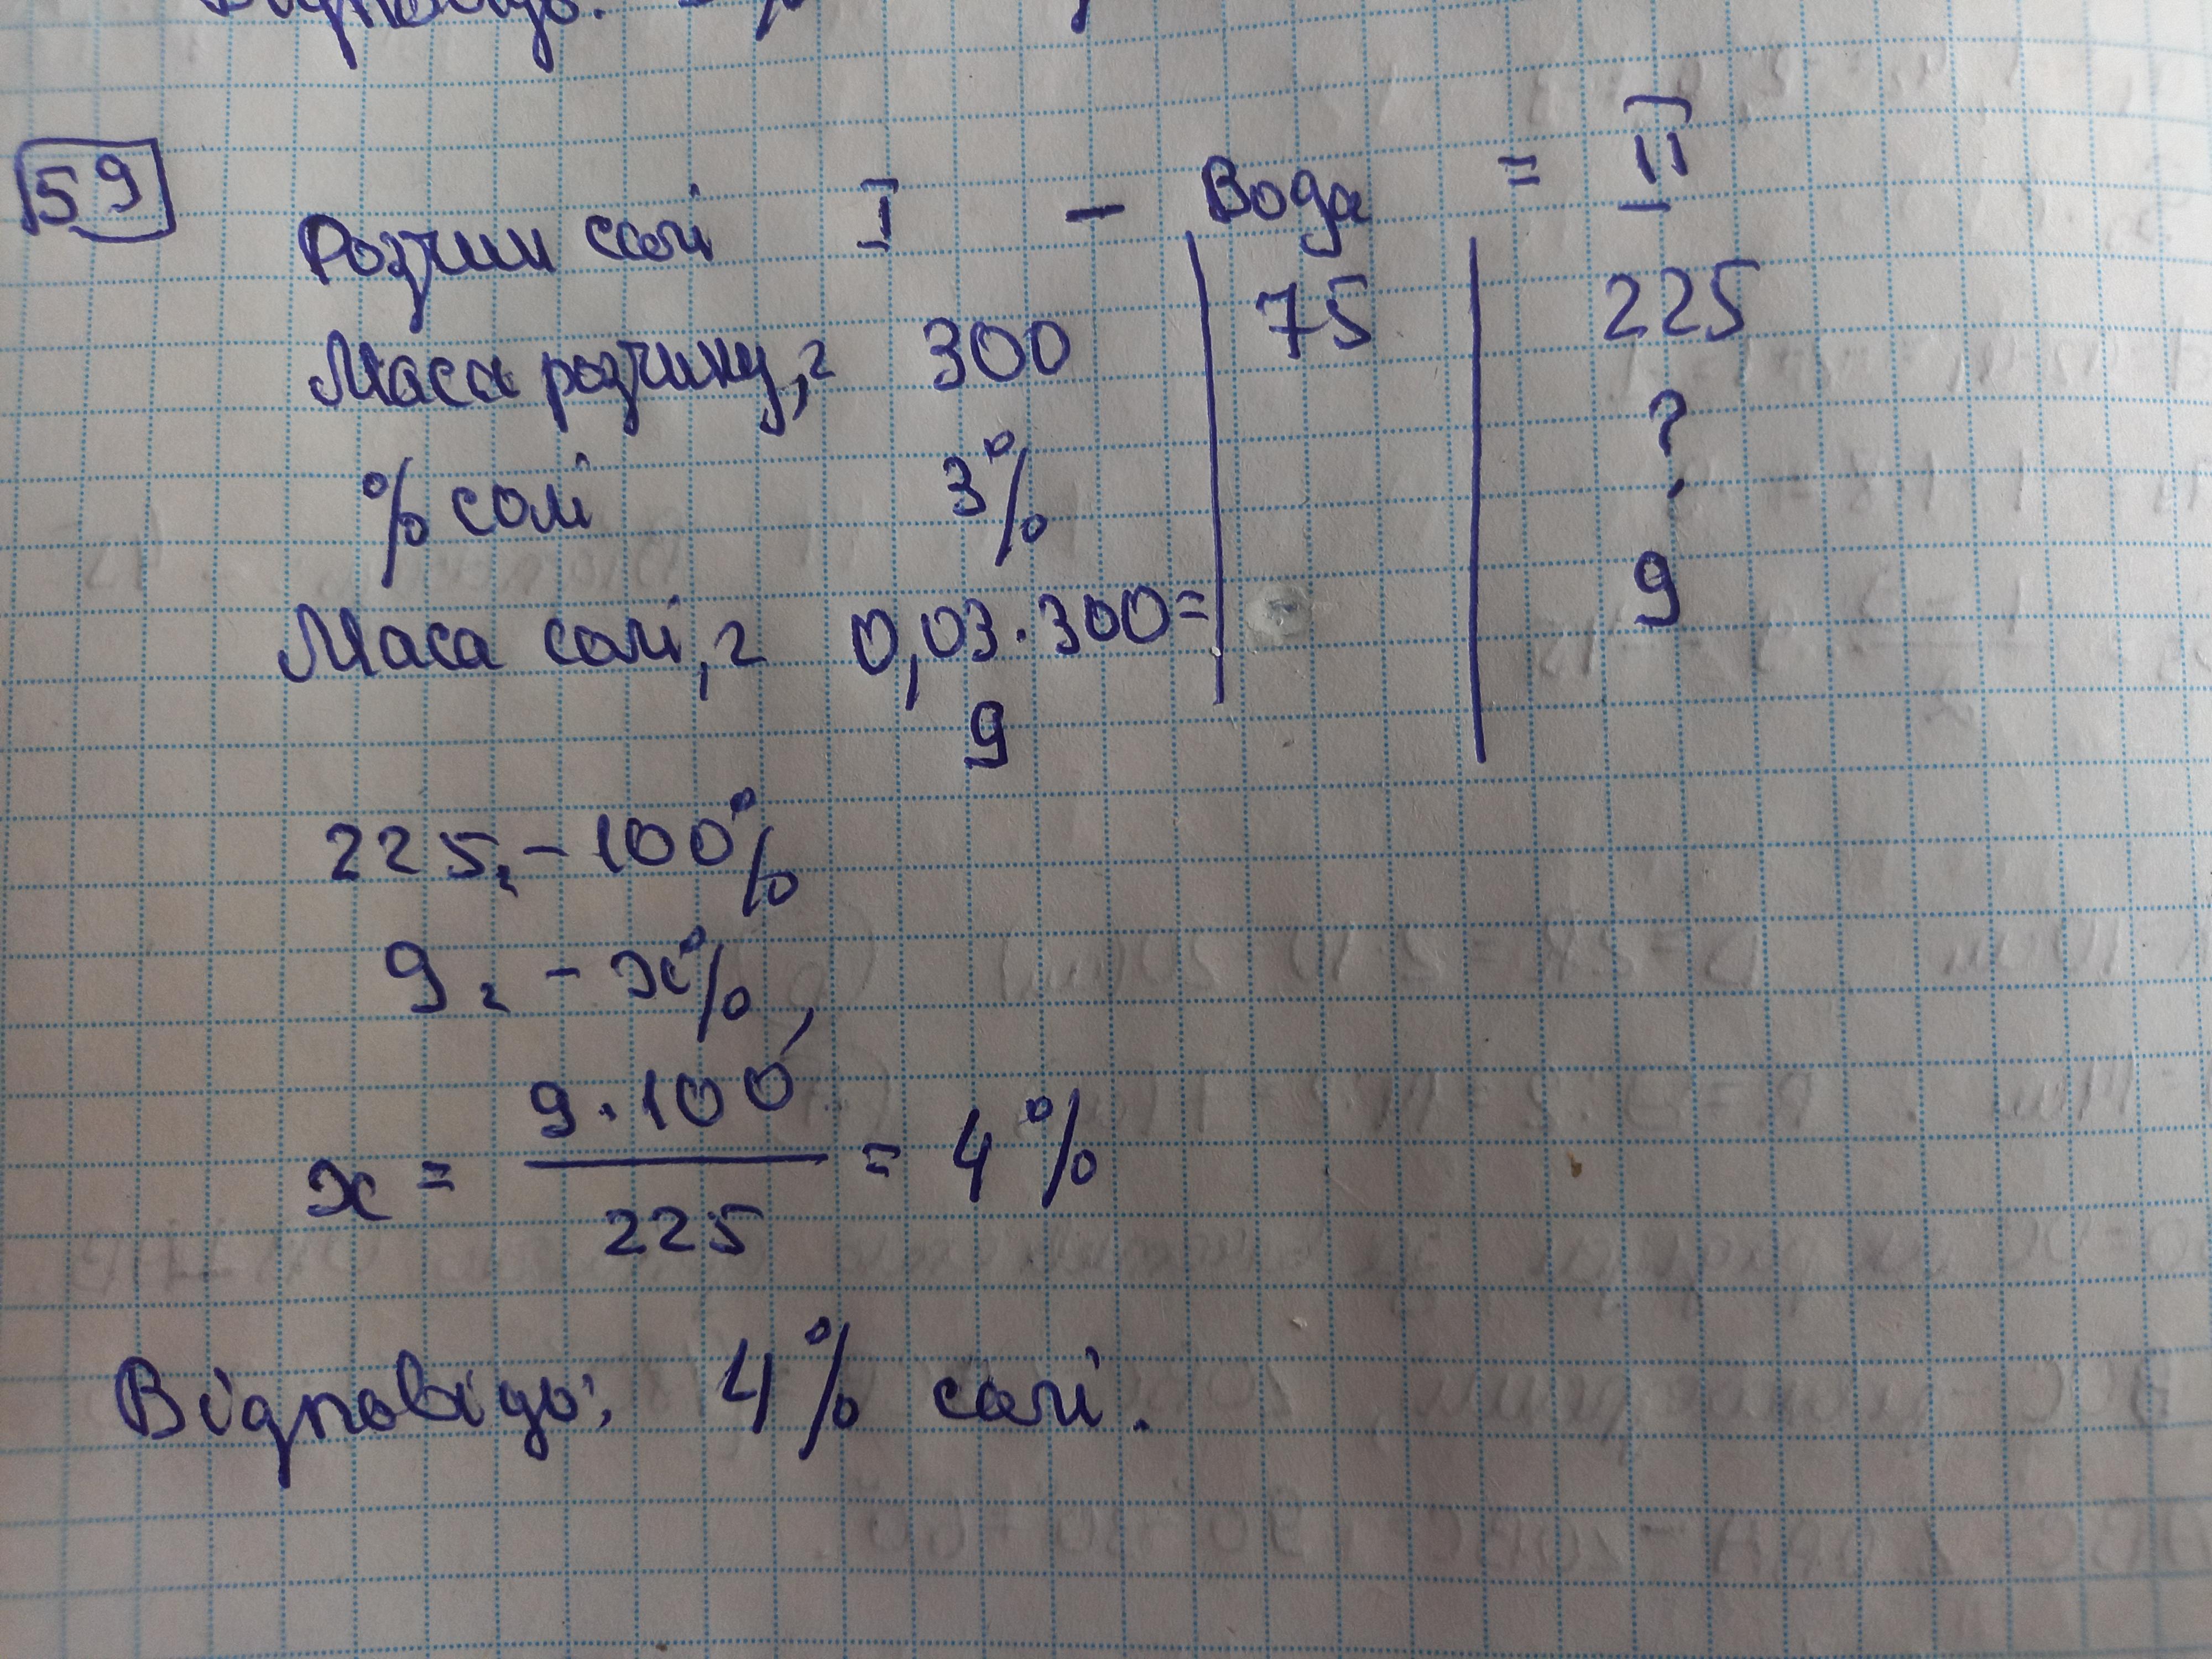 Відповідь:
59
Розчин солі I - Вода = II
Маса розчину, г 300 75 225
% солі 3% ?
Маса солі, г 0,03·300= 9
9
225г - 100%
9г - x%,
x = 9·100 / 225 = 4%
Відповідь: 4% солі.